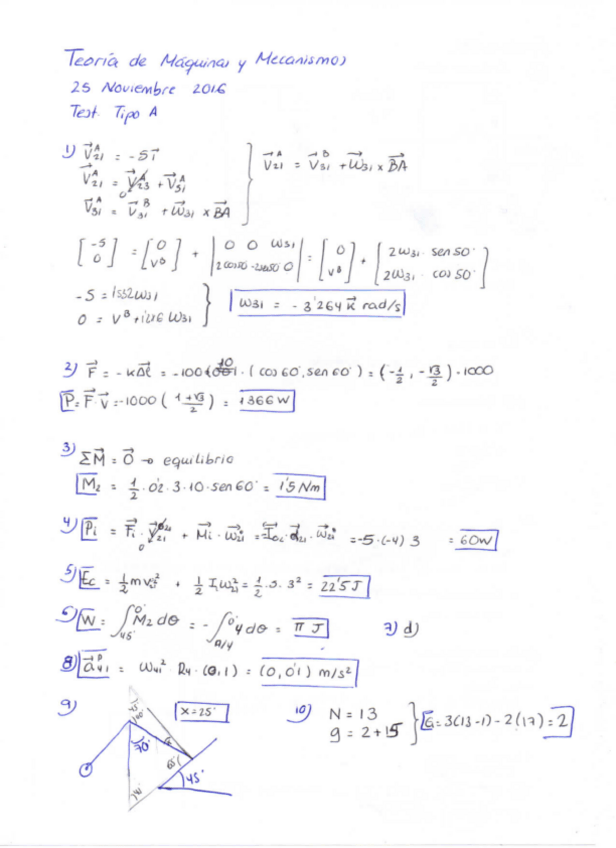 Teoría de Máquinas y Mecanismos
25 Noviembre 2016
Test Tipo A
1) V₂₁ᴬ = -5i
V₂₁ᴬ = V₂₃ᴬ + V₃₁ᴬ
0
V₃₁ᴬ = V₃₁ᴮ + ω₃₁ × BA
V₂₁ᴬ = V₃₁ᴮ + ω₃₁ × BA
[-5 0] = [0 Vᴮ] + |0 0 ω₃₁ 2cos50 -2sen50 0| = [0 Vᴮ] + [2ω₃₁· sen50° 2ω₃₁· cos50°]
-5 = 1'532ω₃₁
0 = Vᴮ + 1'286 ω₃₁
ω₃₁ = -3'264 k rad/s
2) F = -kΔl = -100 10 · (cos60, sen60°) = (-1/2, -√3/2)·1000
P = F·V = -1000 (1+√3/2) = 1366W
3) ΣM = 0 → equilibrio
M₂ = 1/2 · 0'2 · 3 · 10 · sen60° = 1'5 Nm
4) Pi = Fi · + Mi · ω₂₁ = · α₂₁ · ω₂₁ = -5·(-4) 3 = 60W
0
5) Ec = 1/2 m v² + 1/2 I₁ω₂₁² = 1/2 · 5 · 3² = 22'5 J
6) W = ∫ 0° 45° M₂ dθ = -∫ 0° π/4 4 dθ = π J
7) d)
8) a₄₁ᴾ = ω₄₁² · R₄ · (0,1) = (0, 0'1) m/s²
9) x = 25°
70°
65°
45°
10) N = 13
g = 2+15
G = 3(13-1) - 2(17) = 2